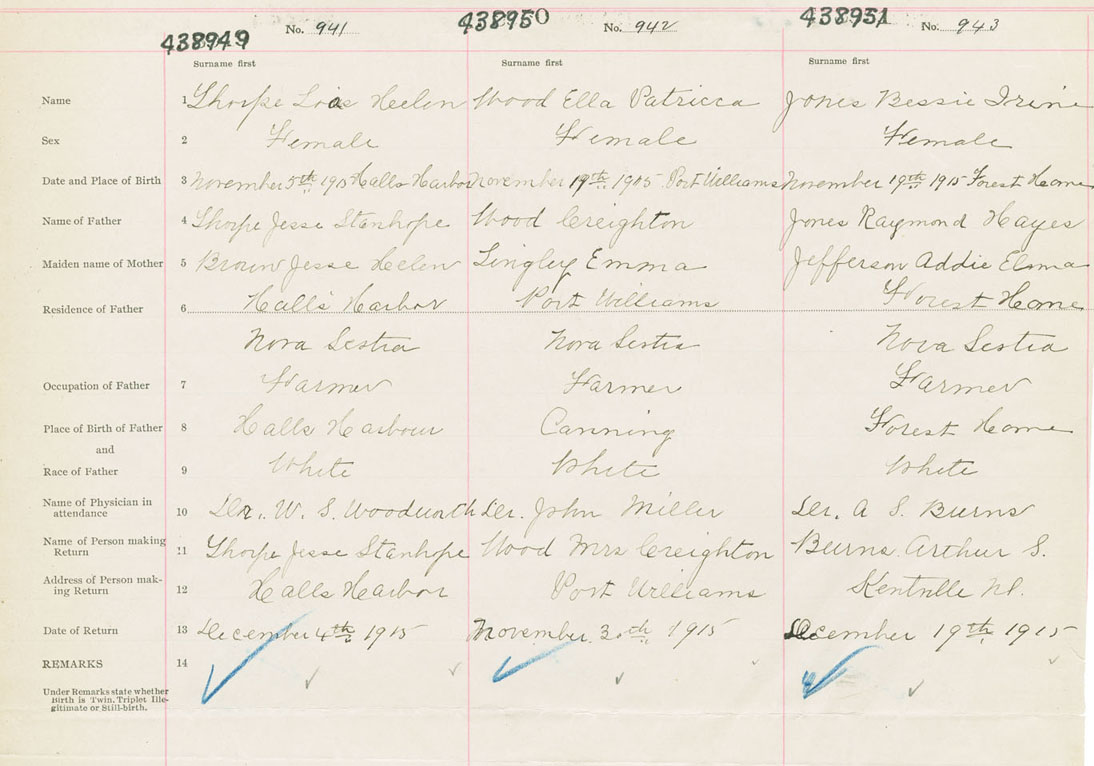 438949 No. 941 438950 No. 942 438951 No. 943
Surname first Surname first Surname first
Name 1 Thorpe Lois Heelen Wood Ella Patricca Jones Bessie Irine
Sex 2 Female Female Female
Date and Place of Birth 3 November 5th 1915 Halls Harbor November 19th 1905 Port Williams November 19th 1915 Forest Home
Name of Father 4 Thorpe Jesse Stanhope Wood Creighton Jones Raymond Hayes
Maiden name of Mother 5 Brown Jesse Heelen Lingley Emma Jefferson Addie Elma
Residence of Father 6 Halls Harbor Port Williams Forest Home
Nova Scstia Nova Scstia Nova Scstia
Occupation of Father 7 Farmer Farmer Farmer
Place of Birth of Father 8 Halls Harbour Canning Forest Home
and
Race of Father 9 White White White
Name of Physician in
attendance 10 Dr. W. S. Woodworth Dr. John Miller Dr. A S. Burns
Name of Person making
Return 11 Thorpe Jesse Stanhope Wood Mrs Creighton Burns Arthur S.
Address of Person mak-
ing Return 12 Halls Harbor Port Williams Kentville NS.
Date of Return 13 December 4th 1915 November 30th 1915 December 19th 1915
REMARKS 14
Under Remarks state whether
Birth is Twin, Triplet Ille-
gitimate or Still-birth.